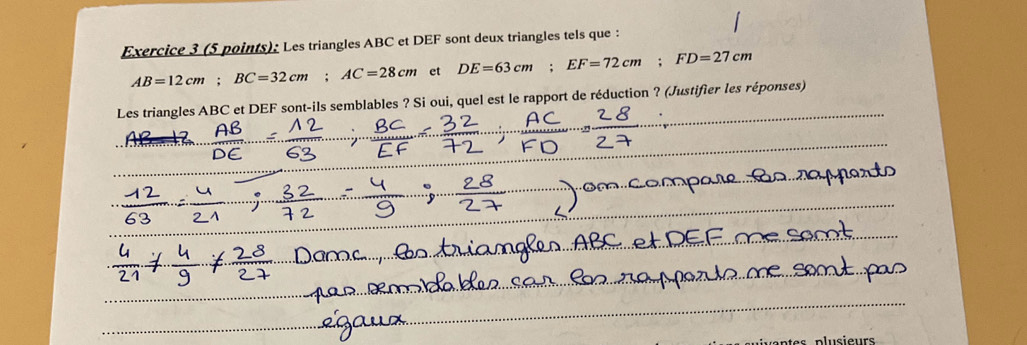 1
Exercice 3 (5 points): Les triangles ABC et DEF sont deux triangles tels que :
AB=12 cm ; BC=32 cm ; AC=28 cm et DE=63 cm ; EF=72 cm ; FD=27 cm
Les triangles ABC et DEF sont-ils semblables ? Si oui, quel est le rapport de réduction ? (Justifier les réponses)
AB/DE = 12/63 ; BC/EF = 32/72 ; AC/FD = 28/27 ;
12/63 = 4/21 ; 32/72 = 4/9 ; 28/27 on compare les rapports
4/21 ≠ 4/9 ≠ 28/27 Donc, les triangles ABC et DEF ne sont
pas semblables car les rapports ne sont pas
égaux
plusieurs